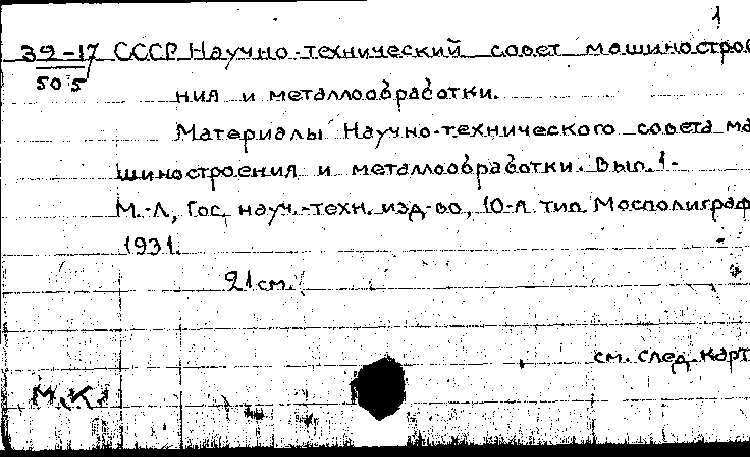 1
39-17 СССР Научно-технический совет машинострое
505
ния и металлообработки.
Материалы Научно-технического совета ма
шиностроения и металлообработки. Вып. 1-
М.-Л, Гос. науч.-техн. изд-во, 10-я тип. Мосполиграф
1931.
21 см.
см. след. карт
М.К.